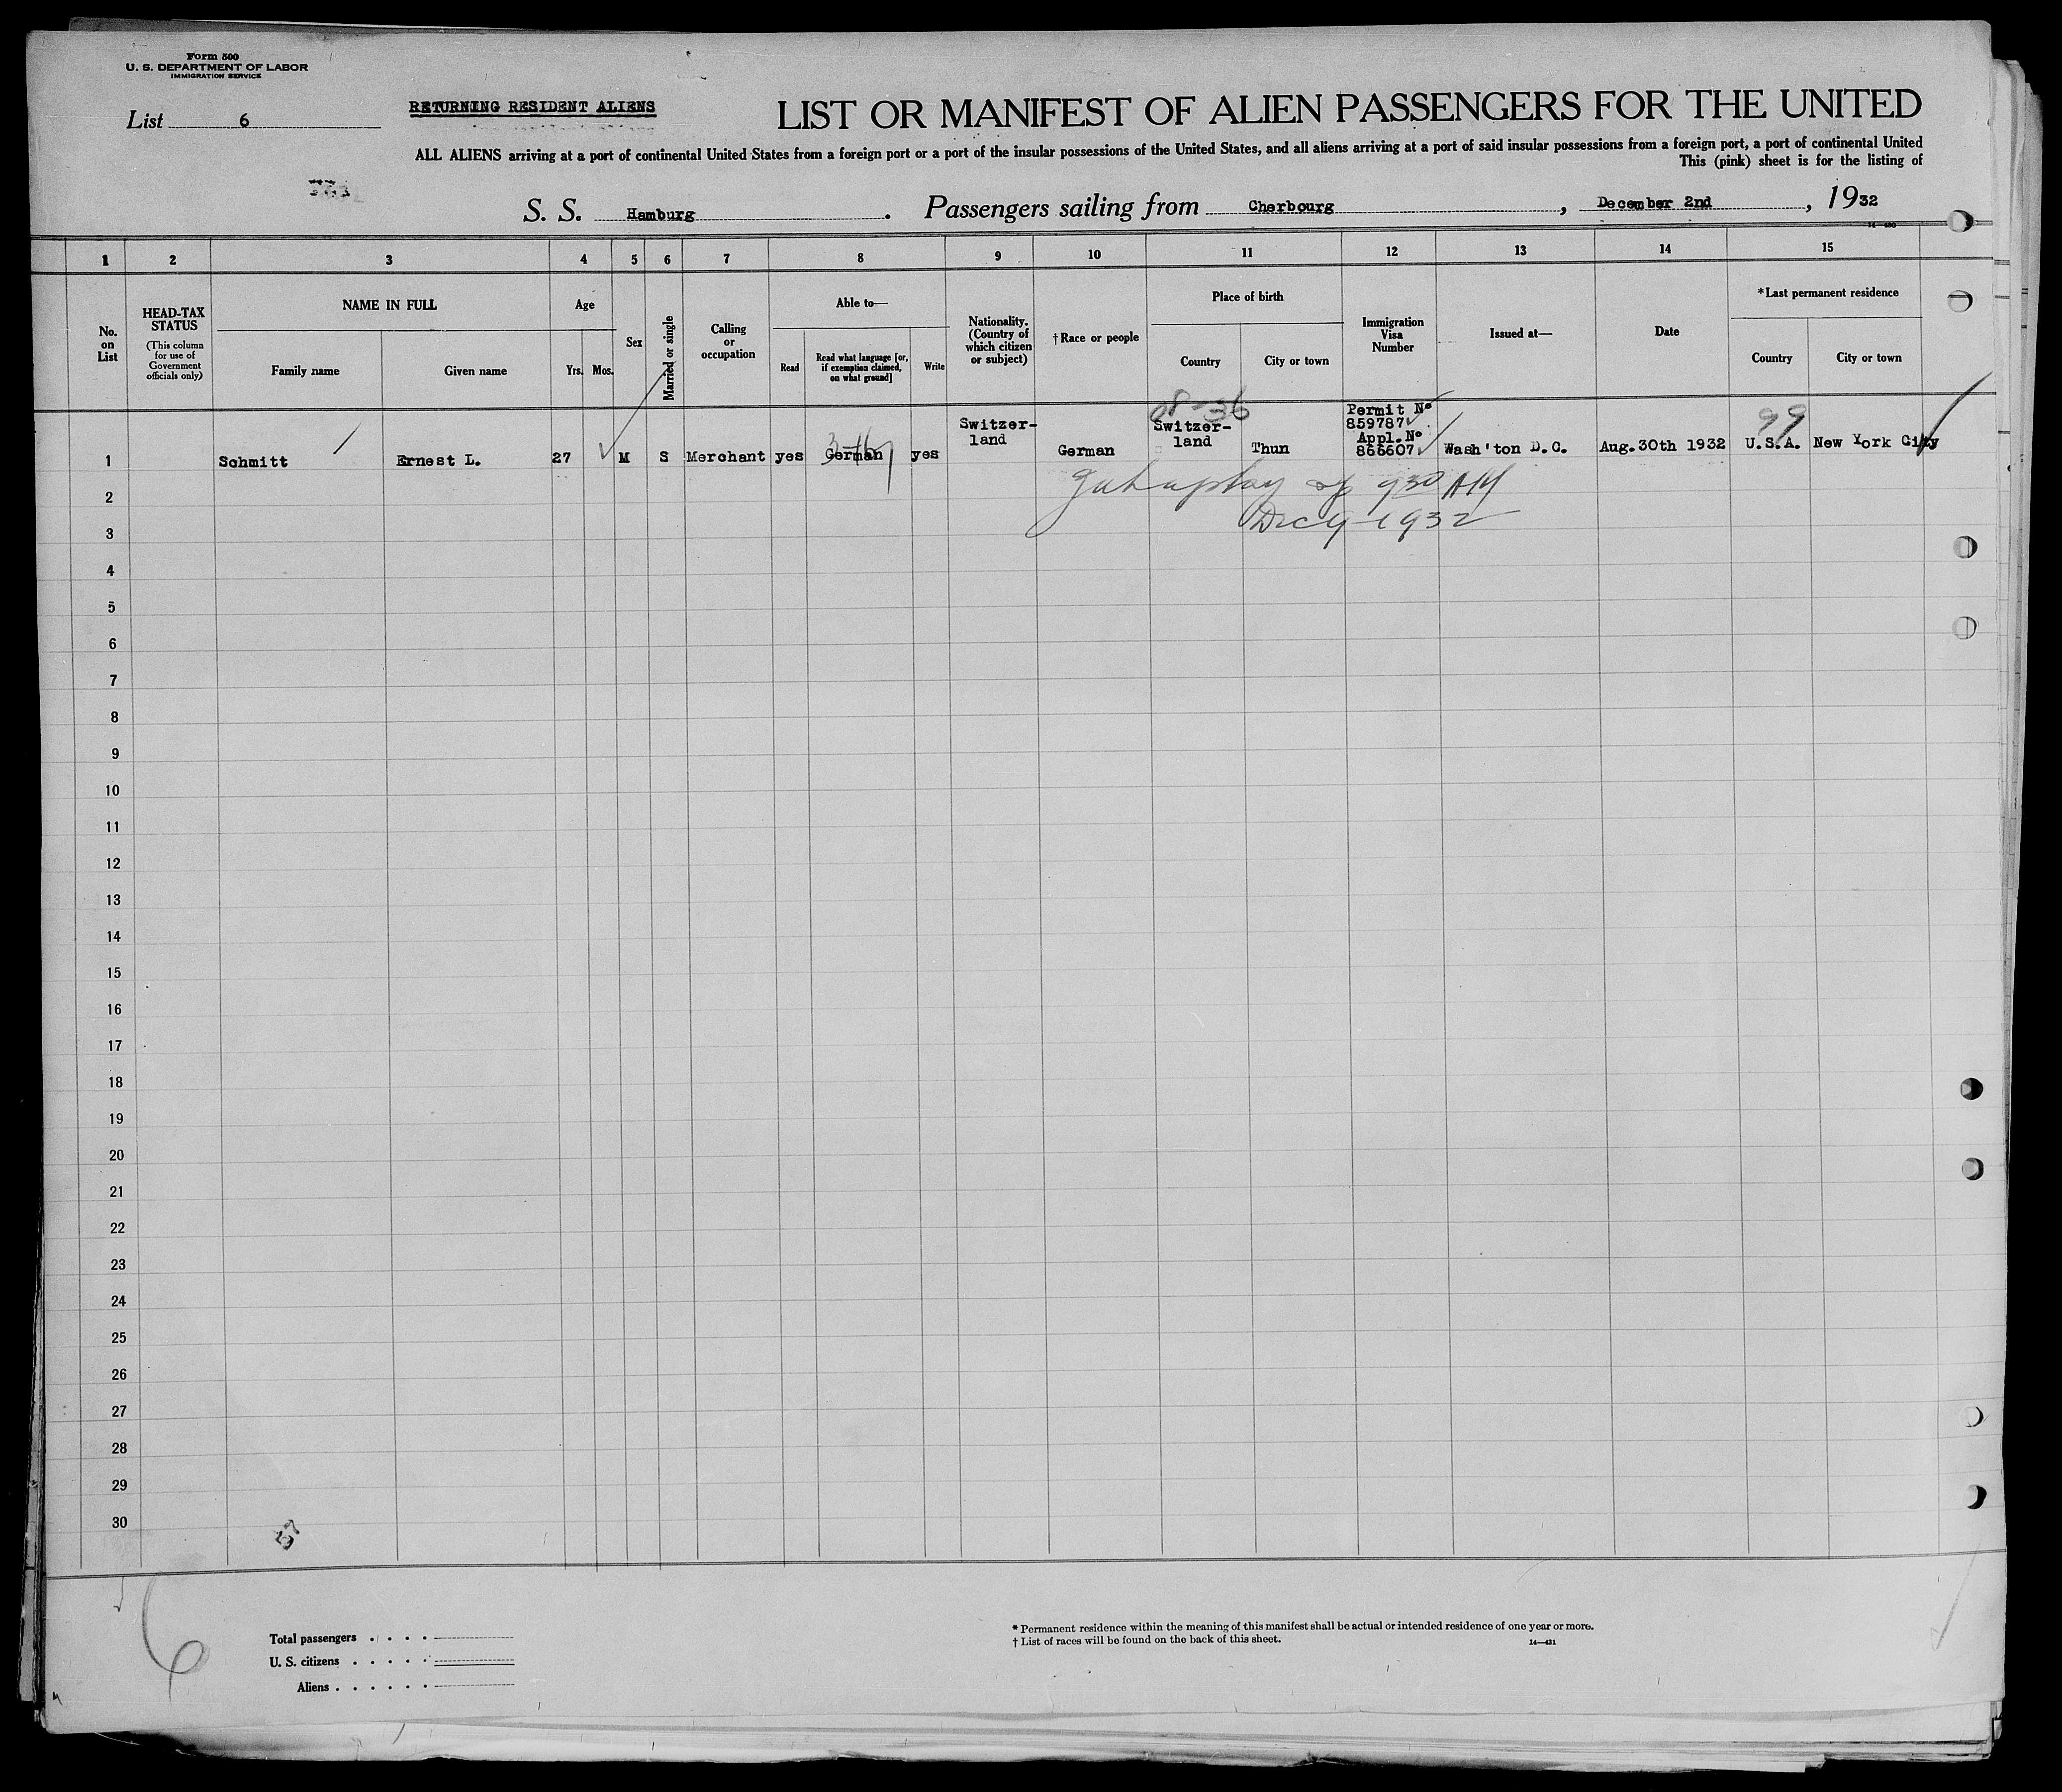 Form 500
U. S. DEPARTMENT OF LABOR
IMMIGRATION SERVICE
List 6
RETURNING RESIDENT ALIENS
LIST OR MANIFEST OF ALIEN PASSENGERS FOR THE UNITED
ALL ALIENS arriving at a port of continental United States from a foreign port or a port of the insular possessions of the United States, and all aliens arriving at a port of said insular possessions from a foreign port, a port of continental United
This (pink) sheet is for the listing of
S. S. Hamburg. Passengers sailing from Cherbourg, December 2nd, 1932
14—430
1 2 3 4 5 6 7 8 9 10 11 12 13 14 15
No. on List
HEAD-TAX STATUS
(This column for use of Government officials only)
NAME IN FULL
Family name Given name
Age
Yrs. Mos.
Sex
Married or single
Calling or occupation
Able to—
Read
Read what language [or, if exemption claimed, on what ground]
Write
Nationality. (Country of which citizen or subject)
†Race or people
Place of birth
Country City or town
Immigration Visa Number
Issued at—
Date
*Last permanent residence
Country City or town
08-36
99
1 Schmitt Ernest L. 27 M S Merchant yes German yes Switzer-land German Switzer-land Thun Permit No 859787 Appl.No 866607 Wash'ton D.C. Aug.30th 1932 U.S.A. New York City
2
930 AM
3
Dec 9-1932
4
5
6
7
8
9
10
11
12
13
14
15
16
17
18
19
20
21
22
23
24
25
26
27
28
29
30
6
Total passengers . . . .
U. S. citizens . . . . .
Aliens . . . . . .
* Permanent residence within the meaning of this manifest shall be actual or intended residence of one year or more.
† List of races will be found on the back of this sheet.
14—431